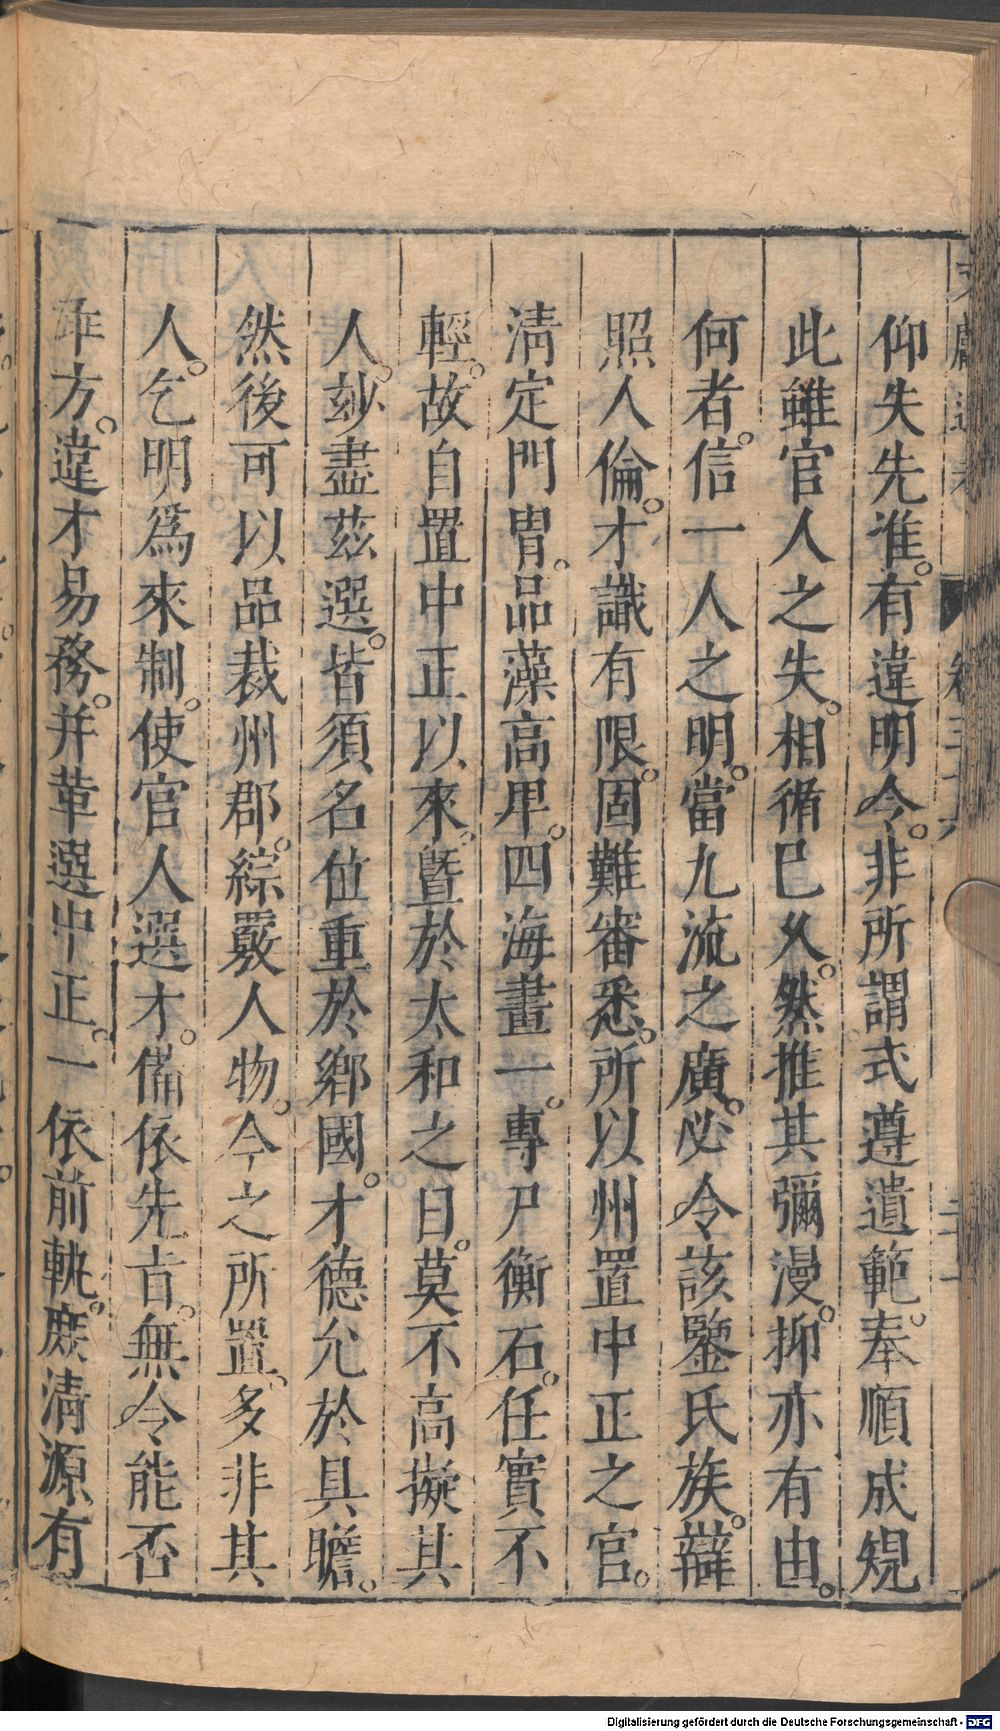 仰失先准。有違明令。非所謂式遵遺範。奉順成規
此雖官人之失。相循巳久。然推其彌漫。抑亦有由。
何者。信一人之明。當九流之廣。必令該鑒氏族。辯
照人倫。才識有限。固難審悉。所以州置中正之官。
淸定門胄。品藻高卑。四海畫一。專尸衡石。任實不
輕。故自置中正以來。曁於太和之日。莫不高擬其
人。玅盡茲選。皆須名位重於鄉國。才德允於具瞻。
然後可以品裁州郡。綜覈人物。今之所置。多非其
人。乞明爲來制。使官人選才。備依先旨。無令能否
乖方。違才易務。并革選中正。一依前軌。庶淸源有
Digitalisierung gefördert durch die Deutsche Forschungsgemeinschaft - DFG